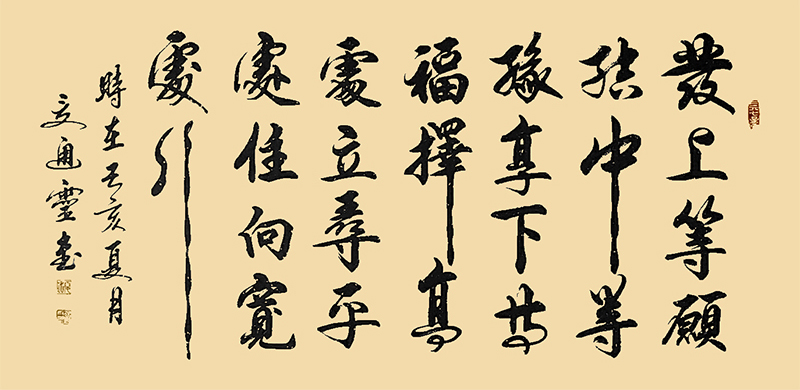 發上等願
結中等
緣享下等
福擇高
處立尋平
處住向寬
處行
時在己亥夏月
通靈書